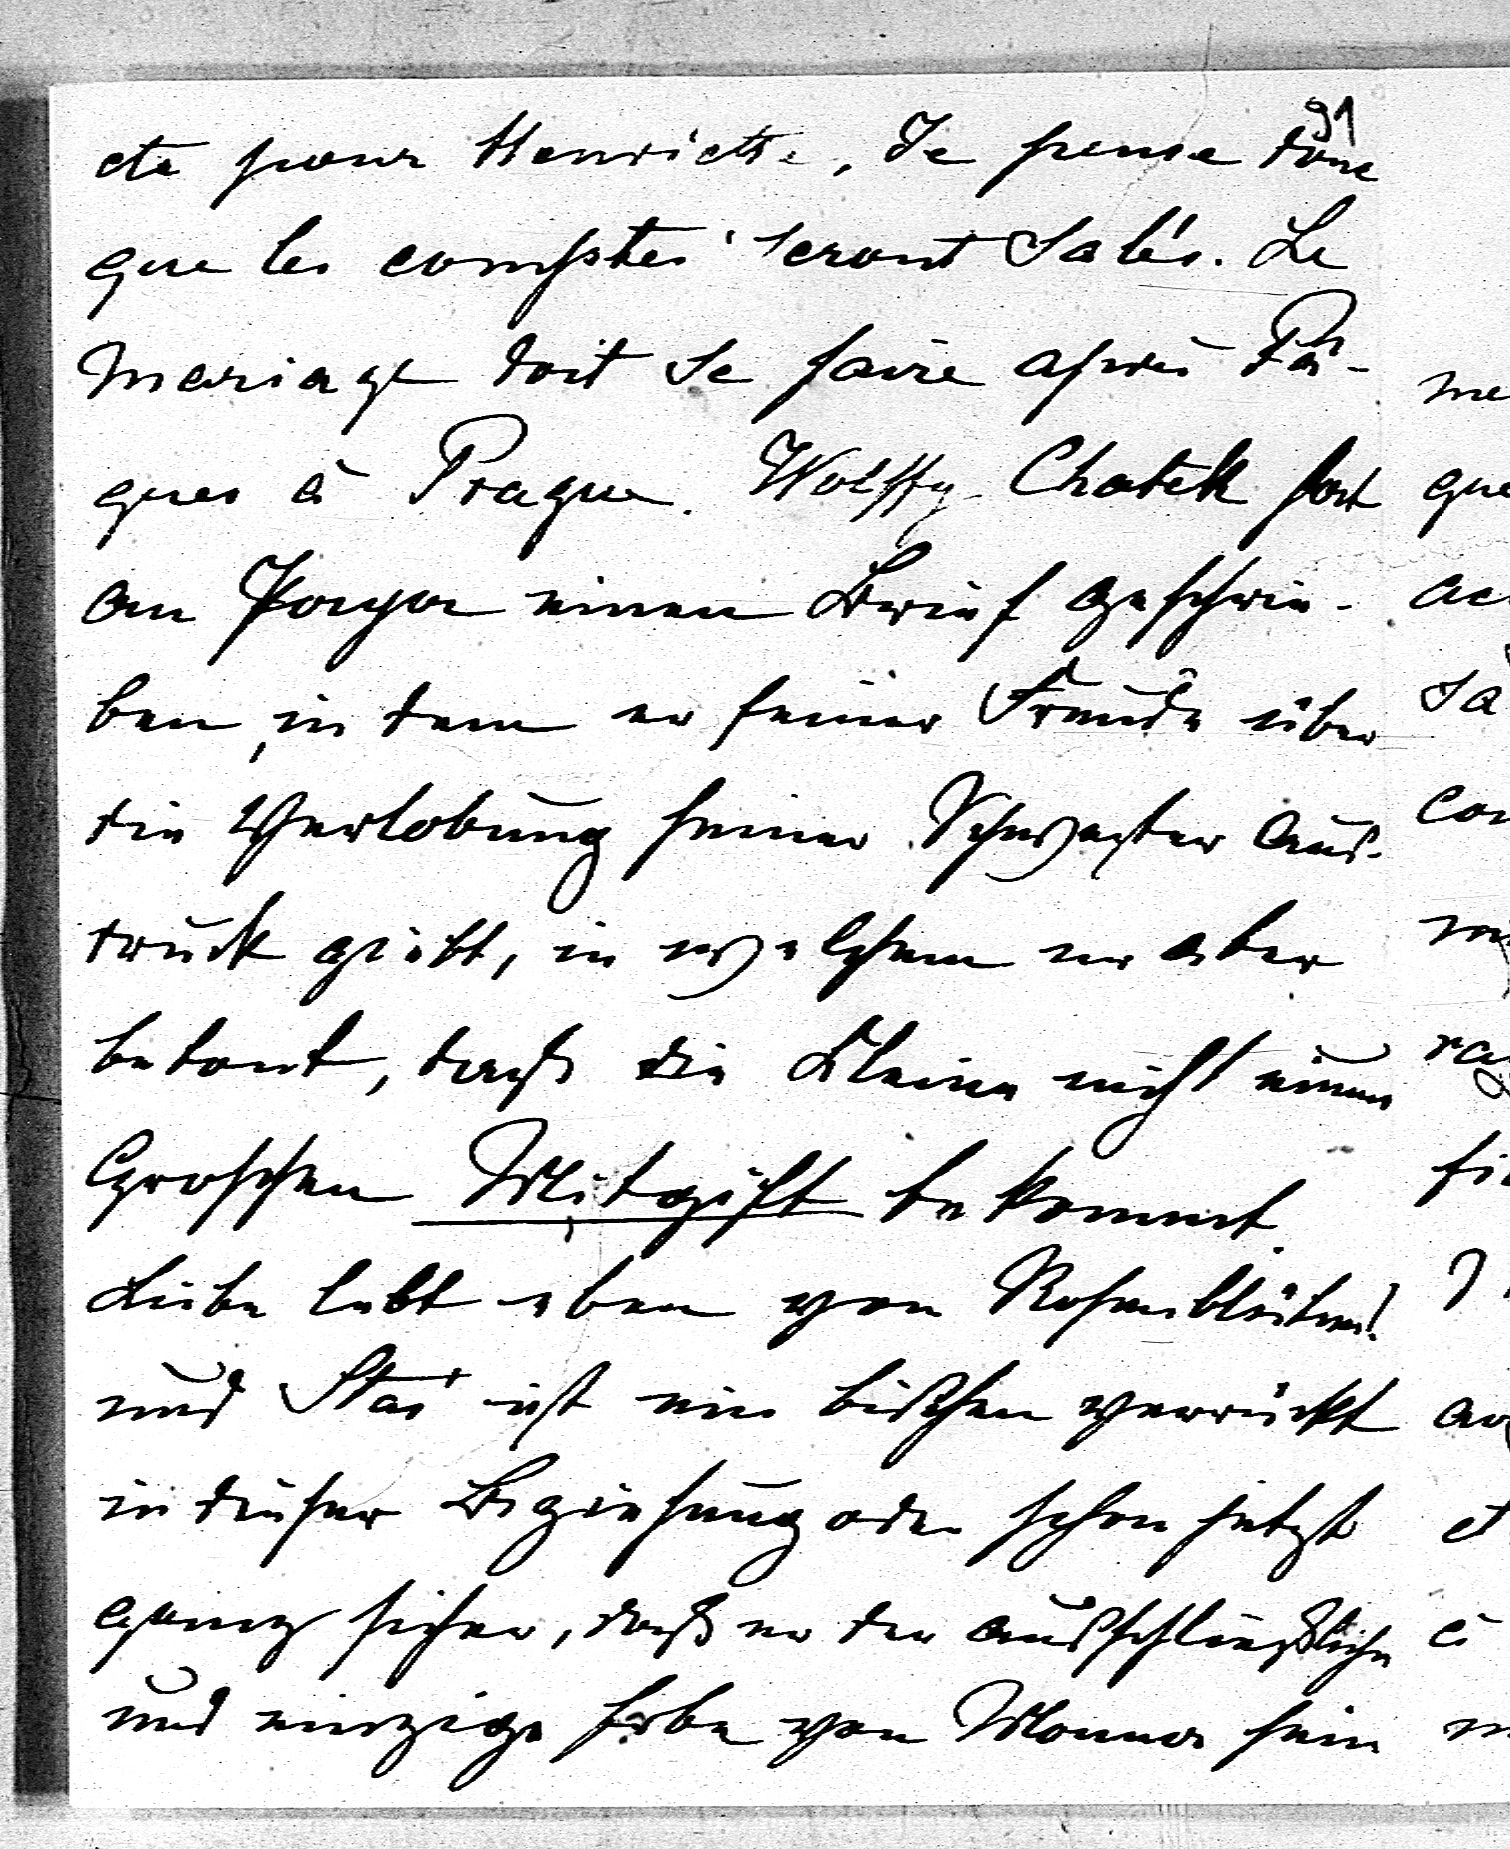 91
etc pour Henriette, Je pense donc
que les comptes seront salés. Le
mariage doit se faire après Pâ-
ques à Prague. Wolffy Chotek hat
an Papa einen Brief geschrie-
ben, in dem er seiner Freude über
die Verlobung seiner Schwester Aus-
druck giebt, in welchem er aber
betont, dass die Kleine nicht einen
Groschen Mitgift bekommt.
Liebe lebt eben von Rosenblüten!
und Stas ist ein bißchen verrückt
in dieser Beziehung oder schon jetzt
ganz sicher, daß er der ausschließliche
und einzige Erbe von Mama sein